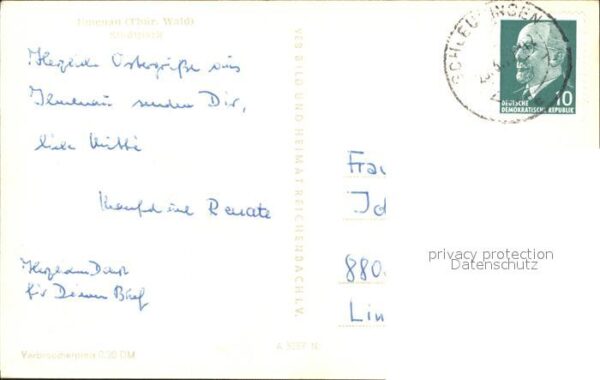 Ilmenau (Thür. Wald)
Herzliche Ostergrüße aus
Ilmenau senden Dir,
liebe
Manfred und Renate
Herzlichen Dank
für Deinen Brief
VEB BILD UND HEIMAT REICHENBACH I. V.
Verbraucherpreis 0,20 DM
SCHLEUSINGEN
10
DEUTSCHE
DEMOKRATISCHE REPUBLIK
Frau
880
Lin
privacy protection
Datenschutz